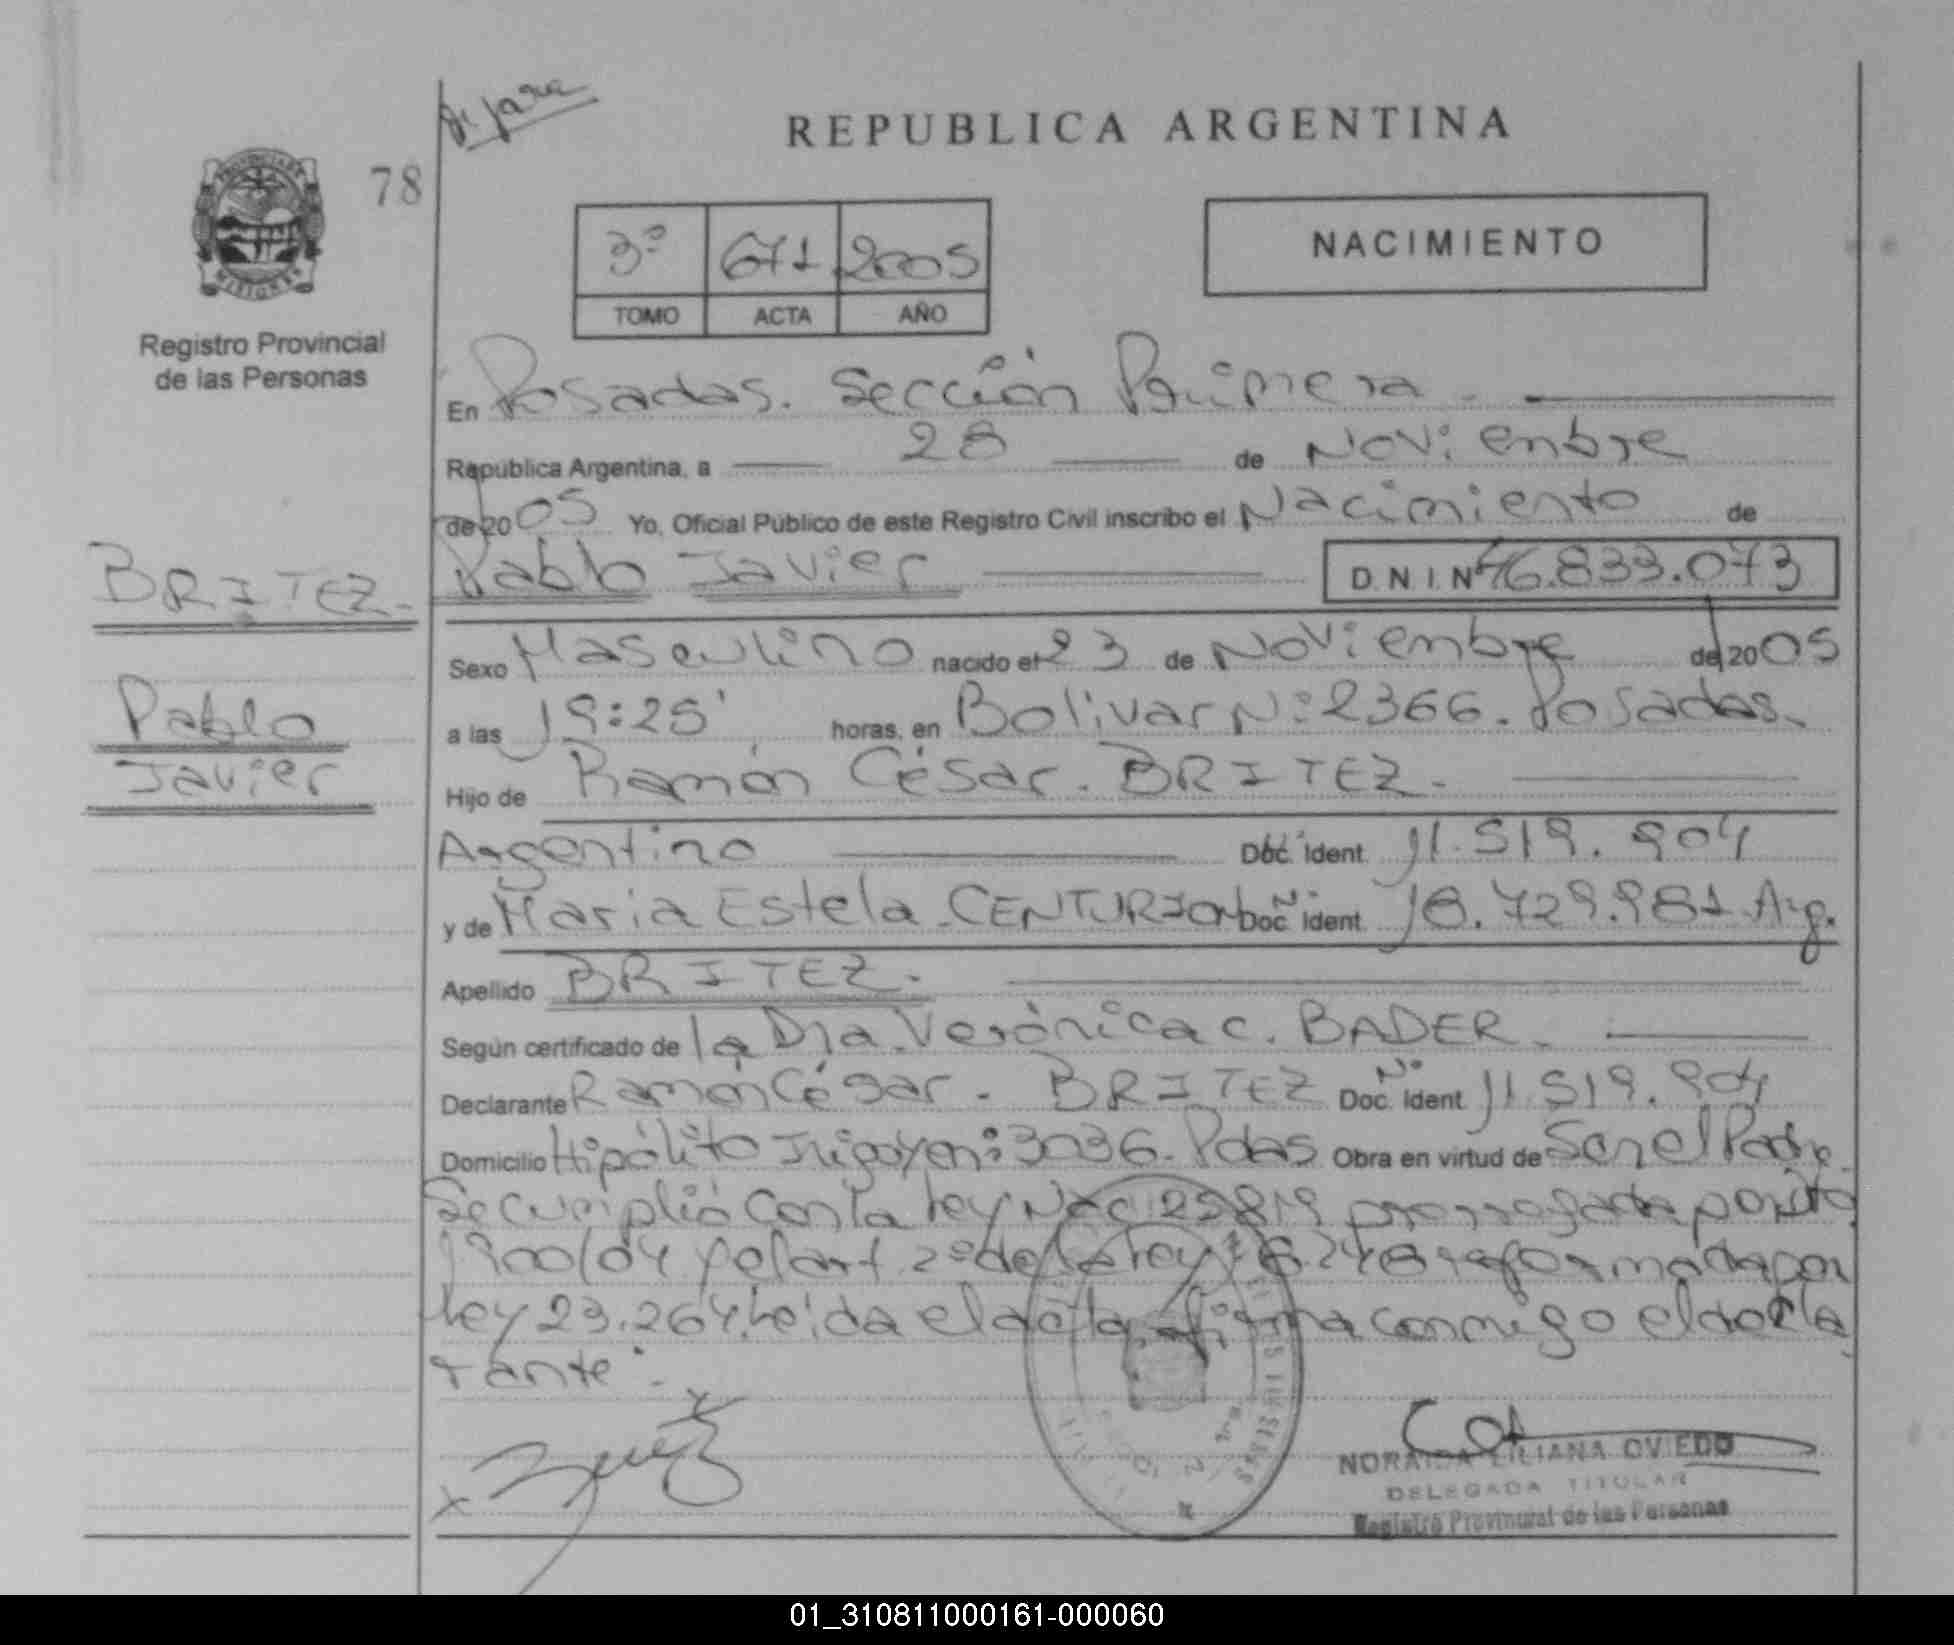 Di Jara
REPUBLICA ARGENTINA
78
PROVINCIA DE
MISIONES
Registro Provincial
de las Personas
3º 671 2005
TOMO ACTA AÑO
NACIMIENTO
En Posadas. Sección Primera.
República Argentina, a 28 de Noviembre
de 2005 Yo, Oficial Público de este Registro Civil inscribo el Nacimiento de
BRITEZ. Pablo Javier D.N.I. Nº 46.833.073
Sexo Masculino nacido el 23 de Noviembre de 2005
Pablo
a las 19:25' horas, en Bolivar Nº: 2366. Posadas.
Javier
Hijo de Ramón César. BRITEZ.
Argentino Doc. Ident. 11.519.904
y de Maria Estela. CENTURION Doc. Nº Ident. 18.729.981 Arg.
Apellido BRITEZ.
Según certificado de la Dra. Verónica C. BADER.
Declarante Ramón César. BRITEZ Doc. Nº Ident. 11.519.904
Domicilio Hipólito Irigoyen: 3036. Pdas Obra en virtud de Ser el Padre.
Se cumplió con la Ley Nac 25819 prorrogada por Dto
1900/04 y el art. 2º de la Ley 18.248 reformada por
Ley 23.264. Leída el acta, firma conmigo el decla
rante.
NORAIDA LILIANA OVIEDO
DELEGADA TITULAR
Registro Provincial de las Personas
01_310811000161-000060